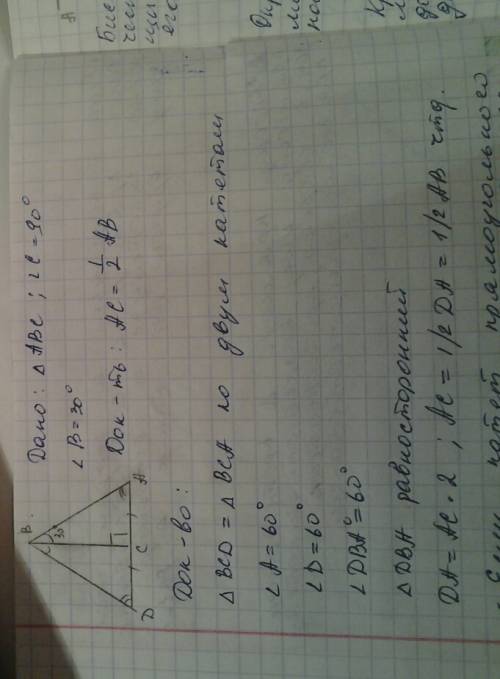 Дано: △ABC; ∠C=90°
∠B=30°
Док-ть: AC = 1/2 AB
B
30°
D
C
A
Док-во:
△BCD = △BCA по двум катетам
∠A=60°
∠D=60°
∠DBA°=60°
△DBA равносторонний
DA=AC·2; AC=1/2DA=1/2AB чтд.
катет прямоугольного